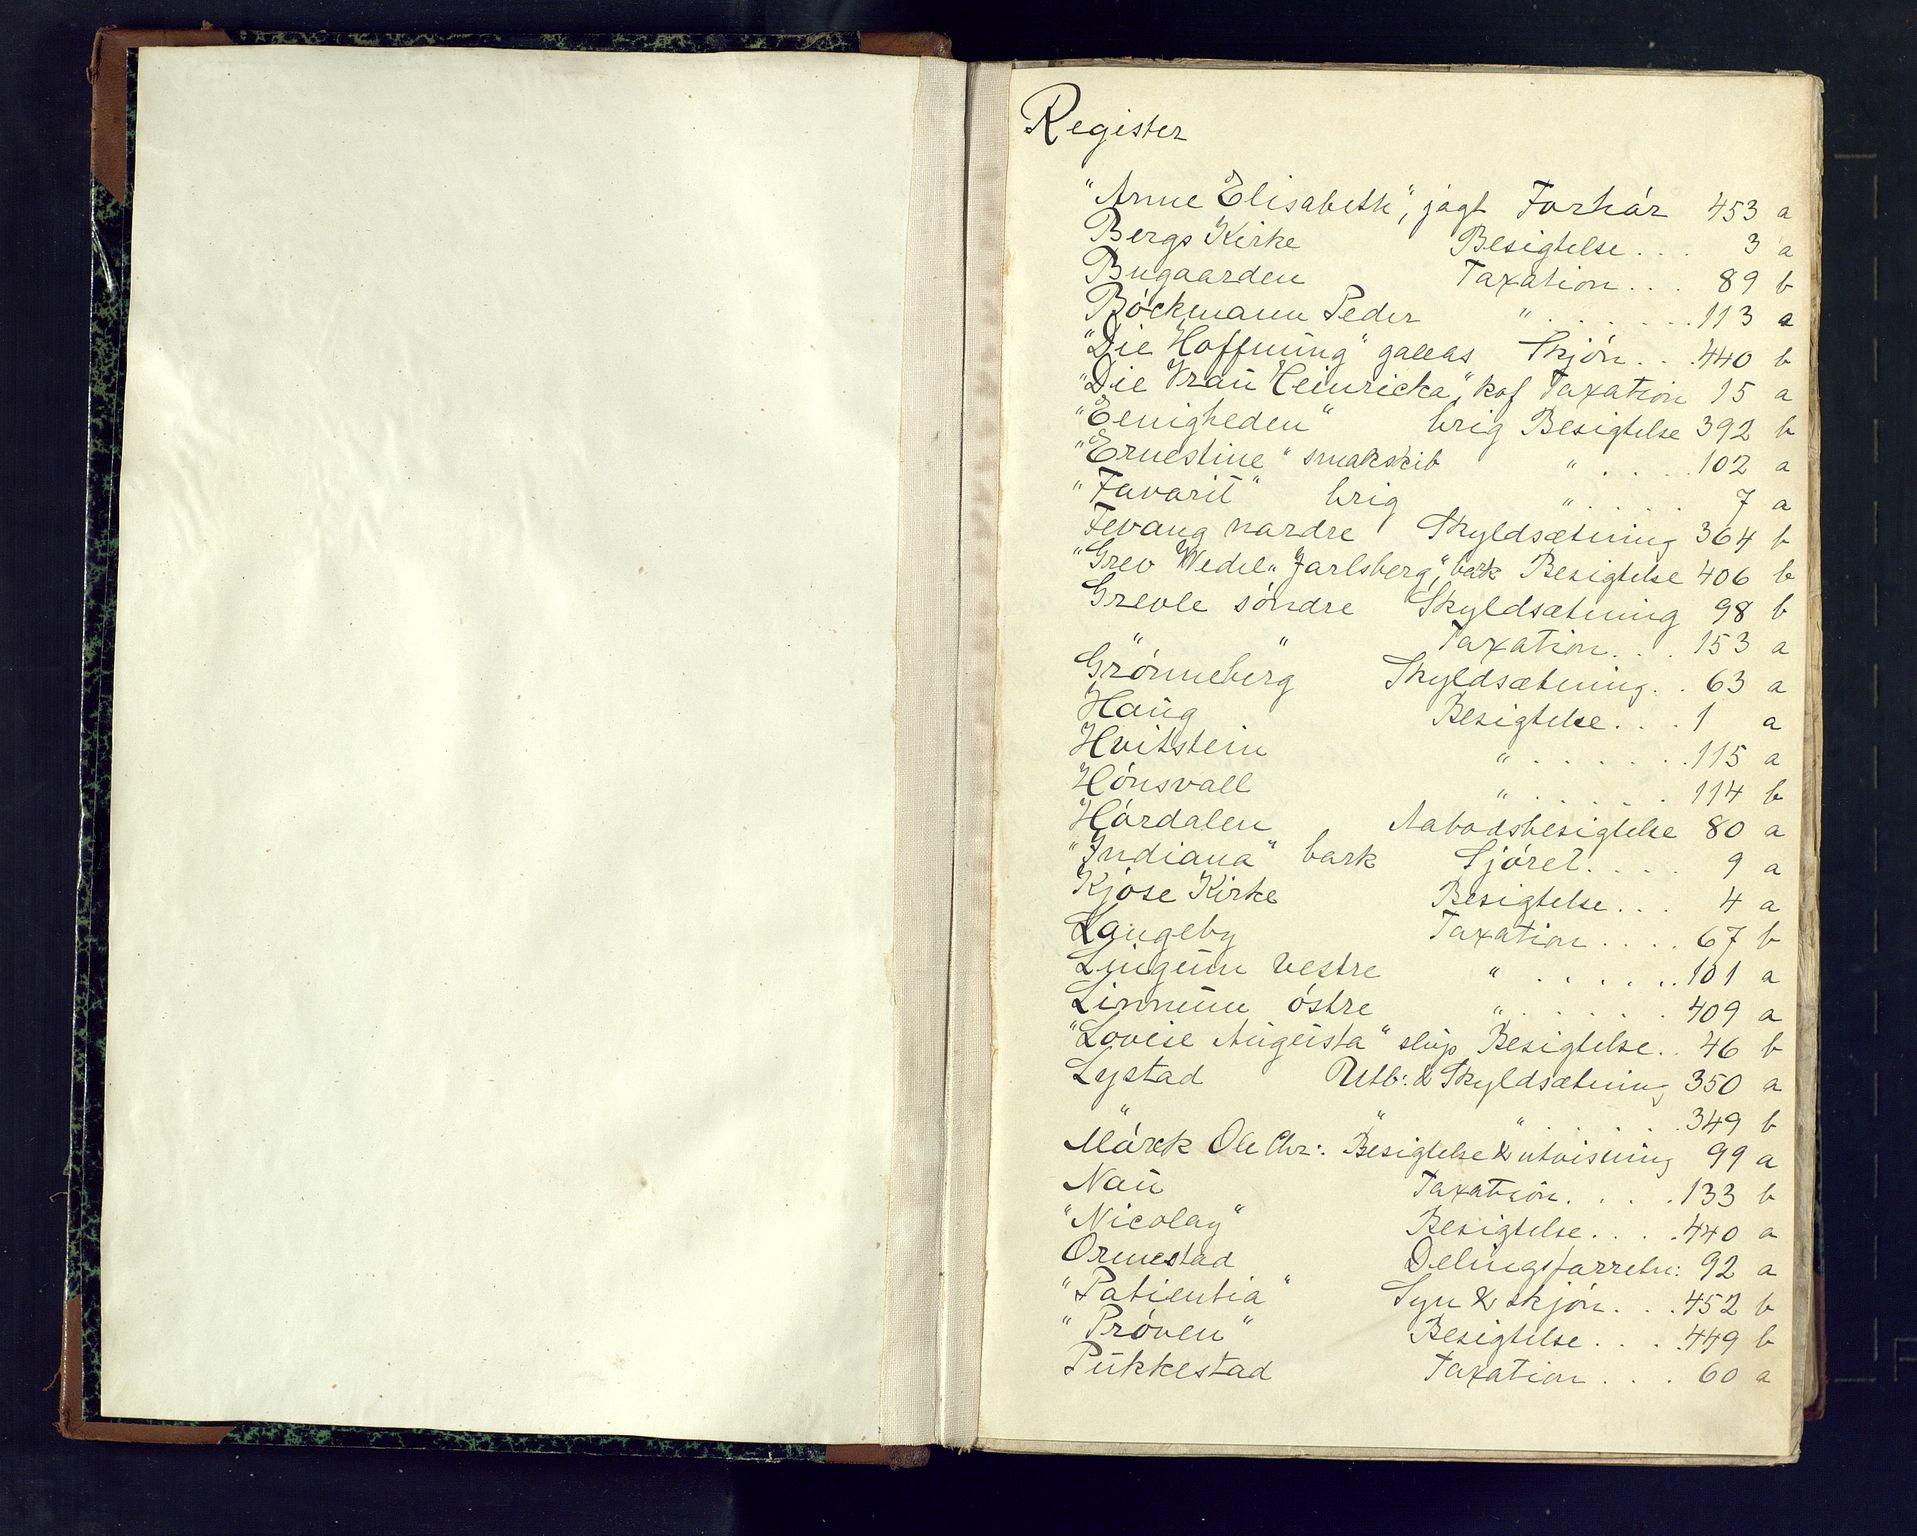 Register
"Anne Elisabeth", jagt Forhör 453 a
Bergs Kirke Besigtelse . . . 3 a
Bugaarden Taxation . . . 89 b
Böckmann Peder " . . . . . . 113 a
"Die Hoffnung" galeas Skjön . . . 440 b
"Die Vrau Heinricka", kof Taxation 15 a
"Eenigheden" brig Besigtelse 392 b
"Ernestine" smakskib " . . . . 102 a
"Favorit" brig " . . . . . 7 a
Fevang nordre Skyldsætning 364 b
"Grev Wedel Jarlsberg", bark Besigtelse 406 b
Grevle söndre Skyldsætning 98 b
" " Taxation . . . 153 a
Grönneberg Skyldsætning . . 63 a
Haug Besigtelse . . . . 1 a
Hvitstein " . . . . . . 115 a
Hönsvall " . . . . . . 114 b
Hördalen Aabodsbesigtelse 80 a
"Indiana" bark Sjöret . . . . 9 a
Kjose Kirke Besigtelse . . . 4 a
Langeby Taxation . . . . 67 b
Lingum vestre " . . . . . . 101 a
Linnum östre " . . . . . . 409 a
"Lovise Augusta" slup Besigtelse . . 46 b
Lystad Utb: & Skyldsætning 350 a
" " " . . . . . . 349 b
Mörck Ole Chr: Besigtelse & utvisning 99 a
Nau Taxation . . . . 133 b
"Nicolay" Besigtelse . . . . 440 a
Ormestad Delingsforretn: 92 a
"Patientia" Syn & skjön . . . 452 b
"Pröven" Besigtelse . . . . 449 b
Pukkestad Taxation . . . 60 a